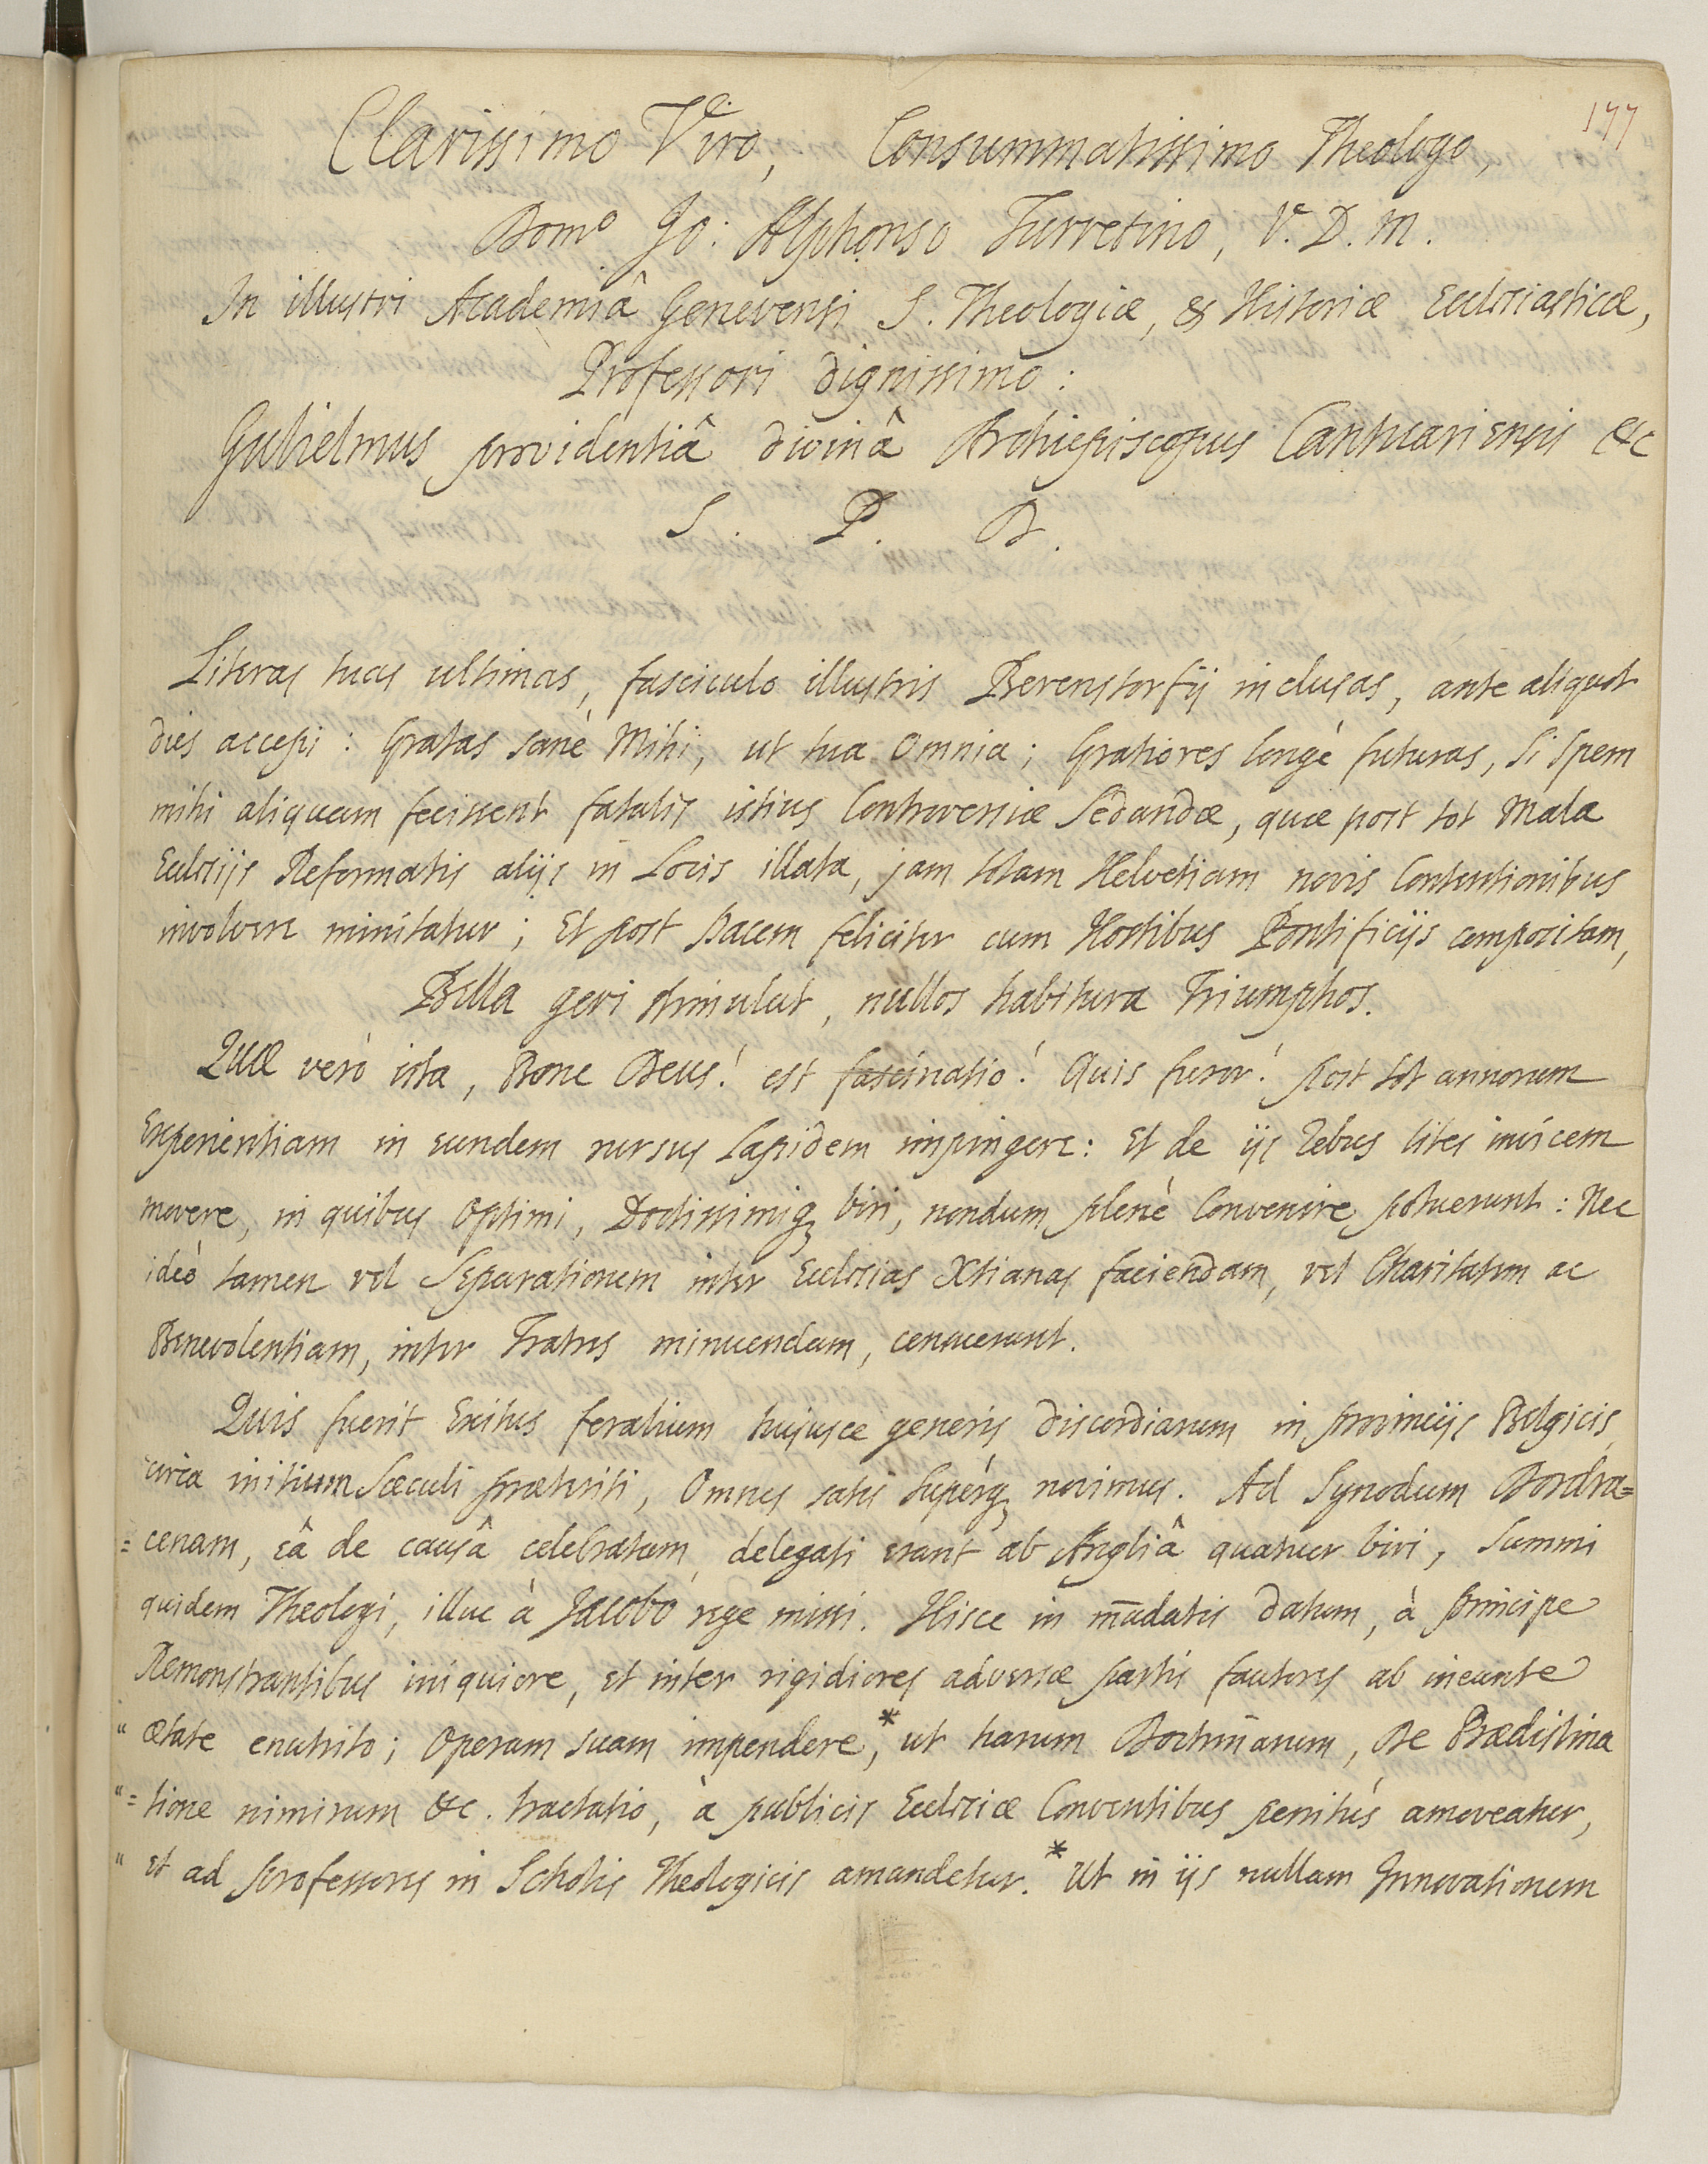 177
Clarissimo Viro, Consummatissimo Theologo,
Domo Jo: Alphonso Turretino, V. D. M.
In illustri Academiâ Genevensi S. Theologiæ, & Historiæ Ecclesiasticæ,
Professori dignissimo:
Gulielmus providentiâ divinâ Archiepiscopus Cantuariensis &c
S. P. D.
Literas tuas ultimas, fasciculo illustris Berenstorfij inclusas, ante aliquot
dies accepi: Gratas sanè Mihi, ut tua omnia; Gratiores longè futuras, si spem
mihi aliquam fecissent fatalis istius Controversiæ Sedandæ, quæ post tot Mala
Ecclesijs Reformatis alijs in Locis illata, jam totam Helvetiam novis Contentionibus
involvere minitatur; Et post pacem feliciter cum Hostibus Pontificijs compositam,
Bella geri stimulat, nullos habitura Triumphos.
Quæ verò ista, Bone Deus! est fascinatio! Quis furor! post tot annorum
Experientiam in eundem rursus Lapidem impingere: Et de ijs rebus lites invicem
movere, in quibus Optimi, Doctissimiq; viri, nondum plenè Convenire potuerunt: Nec
ideò tamen vel Separationem inter Ecclesias Xtianas faciendam, vel Charitatem ac
Benevolentiam, inter Fratres minuendam, censuerunt.
Quis fuerit Exitus feralium hujusce generis discordiarum in provincijs Belgicis,
circa initium Sæculi præteriti, Omnes satis supérq; novimus. Ad Synodum Dordra=
=cenam, eâ de causâ celebratam, delegati erant ab Angliâ quatuor viri, Summi
quidem Theologi, illuc à Jacobo rege missi. Hisce in m̄adatis datum, à principe
Remonstrantibus iniquiore, et inter rigidiores adversæ partis fautores ab ineunte
" ætate enutrito; Operam suam impendere,* ut harum Doctrinarum, De Prædestina
"= tione nimirum &c. tractatio, à publicis Ecclesiæ Conventibus penitùs amoveatur,
" et ad professores in Scholis Theologicis amandetur.* Ut in ijs nullam Innovationem